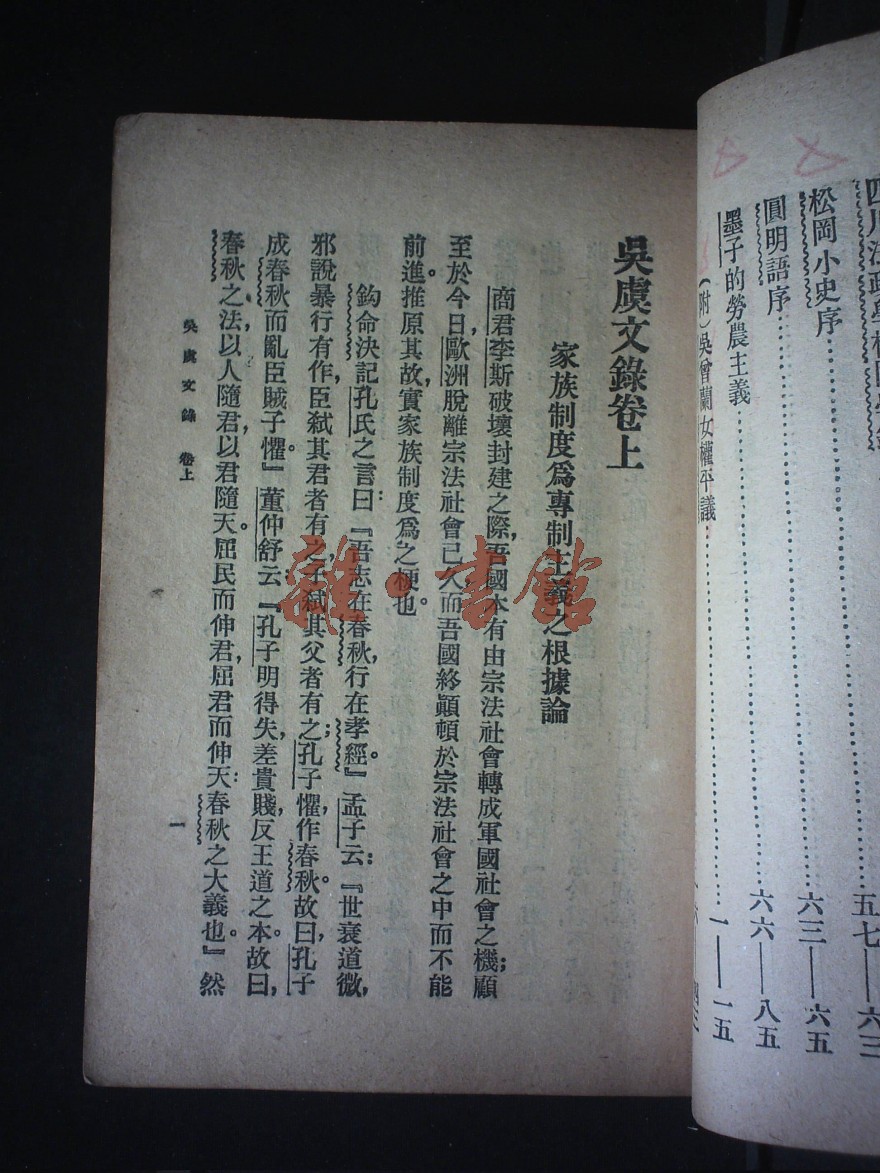 松岡小史序……六三——六五
圓明語序……六六——八五
墨子的勞農主義
(附)吳曾蘭女權平議……一——一五
吳虞文錄卷上
家族制度爲專制主義之根據論
商君李斯破壞封建之際,吾國本有由宗法社會轉成軍國社會之機;顧
至於今日,歐洲脫離宗法社會已久,而吾國終顚頓於宗法社會之中而不能
前進。推原其故,實家族制度爲之梗也。
鈎命決記孔氏之言曰:『吾志在春秋,行在孝經。』孟子云:『世衰道微,
邪說暴行有作,臣弒其君者有之,子弒其父者有之;孔子懼,作春秋。故曰,孔子
成春秋而亂臣賊子懼。』董仲舒云:『孔子明得失,差貴賤,反王道之本。故曰,
春秋之法,以人隨君,以君隨天。屈民而伸君,屈君而伸天:春秋之大義也。』然
吳虞文錄 卷上
一
雜·書館